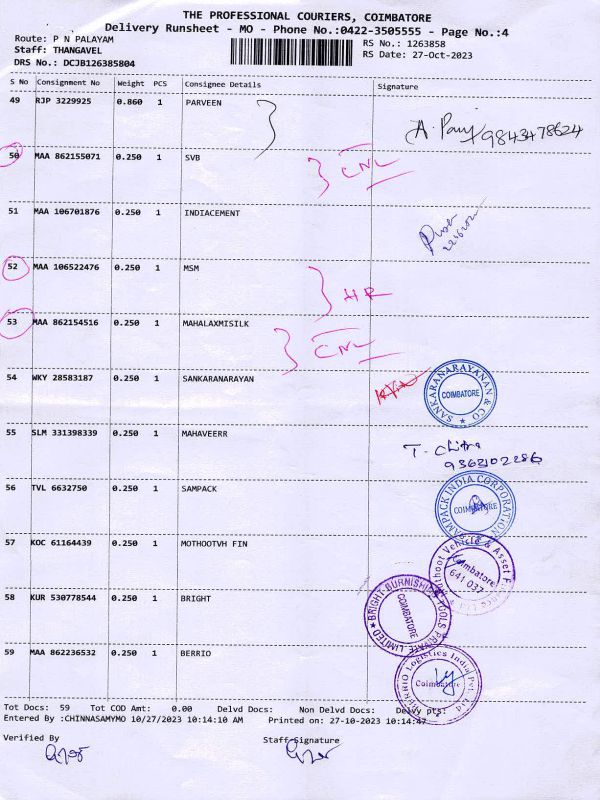 THE PROFESSIONAL COURIERS, COIMBATORE
Delivery Runsheet - MO - Phone No.:0422-3505555 - Page No.:4
Route: P N PALAYAM
RS No.: 1263858
Staff: THANGAVEL
RS Date: 27-Oct-2023
DRS No.: DCJB126385804
S No Consignment No Weight PCS Consignee Details Signature
49 RJP 3229925 0.860 1 PARVEEN
9843478624
50 MAA 862155071 0.250 1 SVB CNL
51 MAA 106701876 0.250 1 INDIACEMENT
52 MAA 106522476 0.250 1 MSM HR
53 MAA 862154516 0.250 1 MAHALAXMISILK CNL
54 WKY 28583187 0.250 1 SANKARANARAYAN
SANKARANARAYANAN & CO
COIMBATORE
55 SLM 331398339 0.250 1 MAHAVEERR
T. Chitra
9363102286
56 TVL 6632750 0.250 1 SAMPACK
SAMPACK INDIA CORPORATION
COIMBATORE
57 KOC 61164439 0.250 1 MOTHOOTVH FIN
Vehicle & Asset
Coimbatore
641 037
58 KUR 530778544 0.250 1 BRIGHT
BRIGHT BURNISHING TOOLS PRIVATE LIMITED
COIMBATORE
59 MAA 862236532 0.250 1 BERRIO
BERRIO Logistics India Pvt. Ltd
Coimbatore
Tot Docs: 59 Tot COD Amt: 0.00 Delvd Docs: Non Delvd Docs: Delvy pts:
Entered By :CHINNASAMYMO 10/27/2023 10:14:10 AM Printed on: 27-10-2023 10:14:47
Verified By Staff Signature